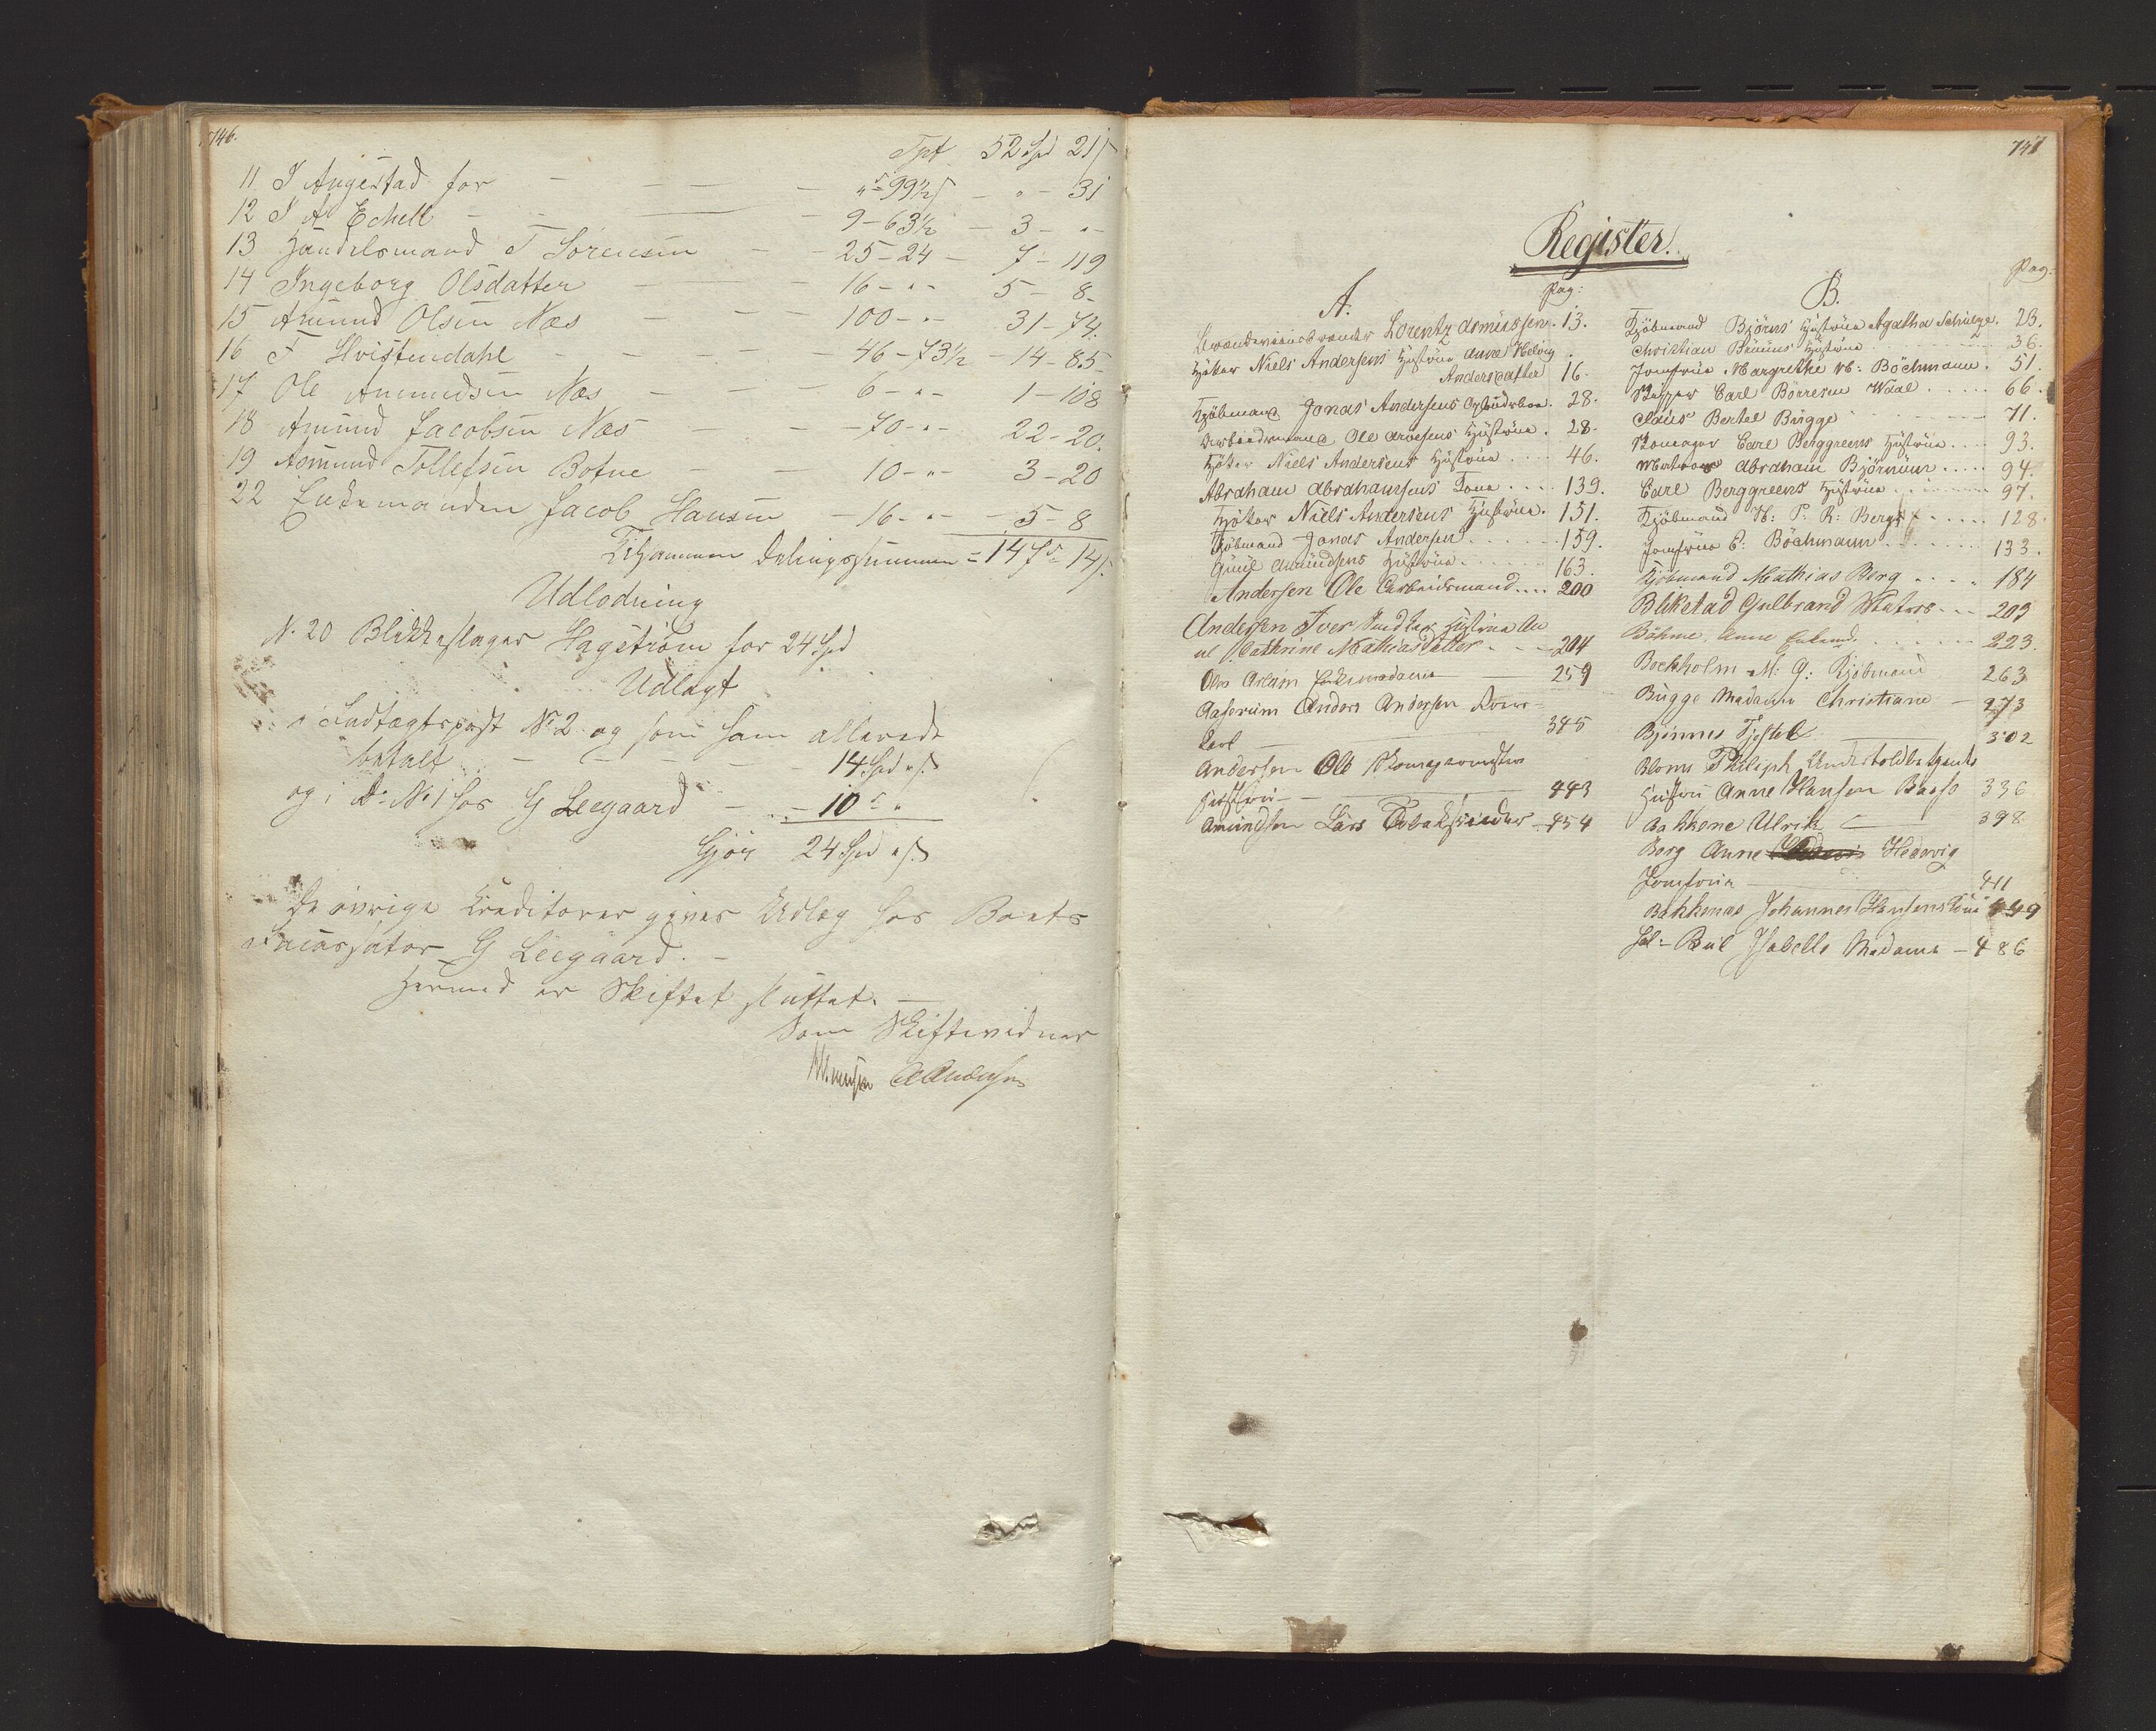 746.
Tpt 52 Spd 21 ß
11. J Angestad for — „ - 99½ ß — „ - 31
12 J A Echell — 9 - 63½ — 3 - „ -
13 Handelsmand T Sörensen — 25 - 24 — 7 - 119
14 Ingeborg Olsdatter — 16 - „ - 5 - 8
15 Amund Olsen Næs — 100 - „ - 31 - 74.
16 F Hvistendahl — 46 - 73½ - 14 - 85
17 Ole Amundsen Næs — 6 - „ - 1 - 108
18 Amund Jacobsen Næs — 70 - „ - 22 - 20.
19 Asmund Tollefsen Botne — 10 - „ - 3 - 20
22 Enkemanden Jacob Hansen — 16 - „ - 5 - 8
Tilsammen Delingssummen = 147 - 14 ß.
Udlodning
No 20 Blikkeslager Hagström for 24 Spd
Udlagt
i Indtægtspost No 2 og som ham allerede
betalt — 14 Spd „ ß
og i Do No 1 hos G Leegaard — 10 - „
Gjör 24 Spd „ ß
De övrige Creditorer gives Udlæg hos Boets
Incassator G Leegaard. —
Hermed er Skiftet sluttet. —
Som Skiftevidner
AAndersen
747
Register.
A. Pag:
Lorentz Asmussen. 13.
Höker Niels Andersens Hustrue Anne Helvig
Andersdatter 16.
Kjöbmand Jonas Andersens 28.
Arbeidsmand Ole Arvesens Hustrue. 28.
Höker Niels Andersens Hustrue .... 46.
Abraham Abrahamsens Kone .... 139.
Höker Niels Andersens Hustrue. 151.
Kjöbmand Jonas Andersen ...... 159.
Amundsens Hustrue ...... 163.
Andersen Ole Arbeidsmand .... 200
Andersen Iver Hustrue An
ne Cathrine Mathiasdatter - - - 204
Enkemadame — 259
Aaserum Anders Andersen
— 385
Andersen Ole Skomagermester
Hustru — 443
Amundsen Lars — 454
B. Pag:
Kjöbmand Björns Hustrue Agatha Schulze. 23.
Christian Hustrue ........ 36.
Jomfrue Margrethe M: Böchmann. 51.
Skipper Carl Börresen Waal ..... 66.
Claus Bertel Bugge ........ 71.
Skomager Carl Berggreens Hustrue .... 93.
Matros Abraham Björnum ..... 94.
Carl Berggreens Hustrue ........ 97.
Kjöbmand H: P: R: Bergs ...... 128.
Jomfrue C: Böchmann ........ 133.
Kjöbmand Mathias Berg ..... 184
Blikstad Gulbrand Matros - - - 203
Böhme, Anne ........ 223.
Bockholm M: G: Kjöbmand 263
Bugge Madame Christiane — 273
Bjönnes Kjestel — 302
Blom Philiph Undertoldbetjents
Hustru Anne Hansen Basso 336
Bakkene Ulrik — 398
Berg Anne Hedevig
Jomfrue — 411
Bakkenes Johannes Hansens 449
Sal: Buil Isabelle Madame — 486